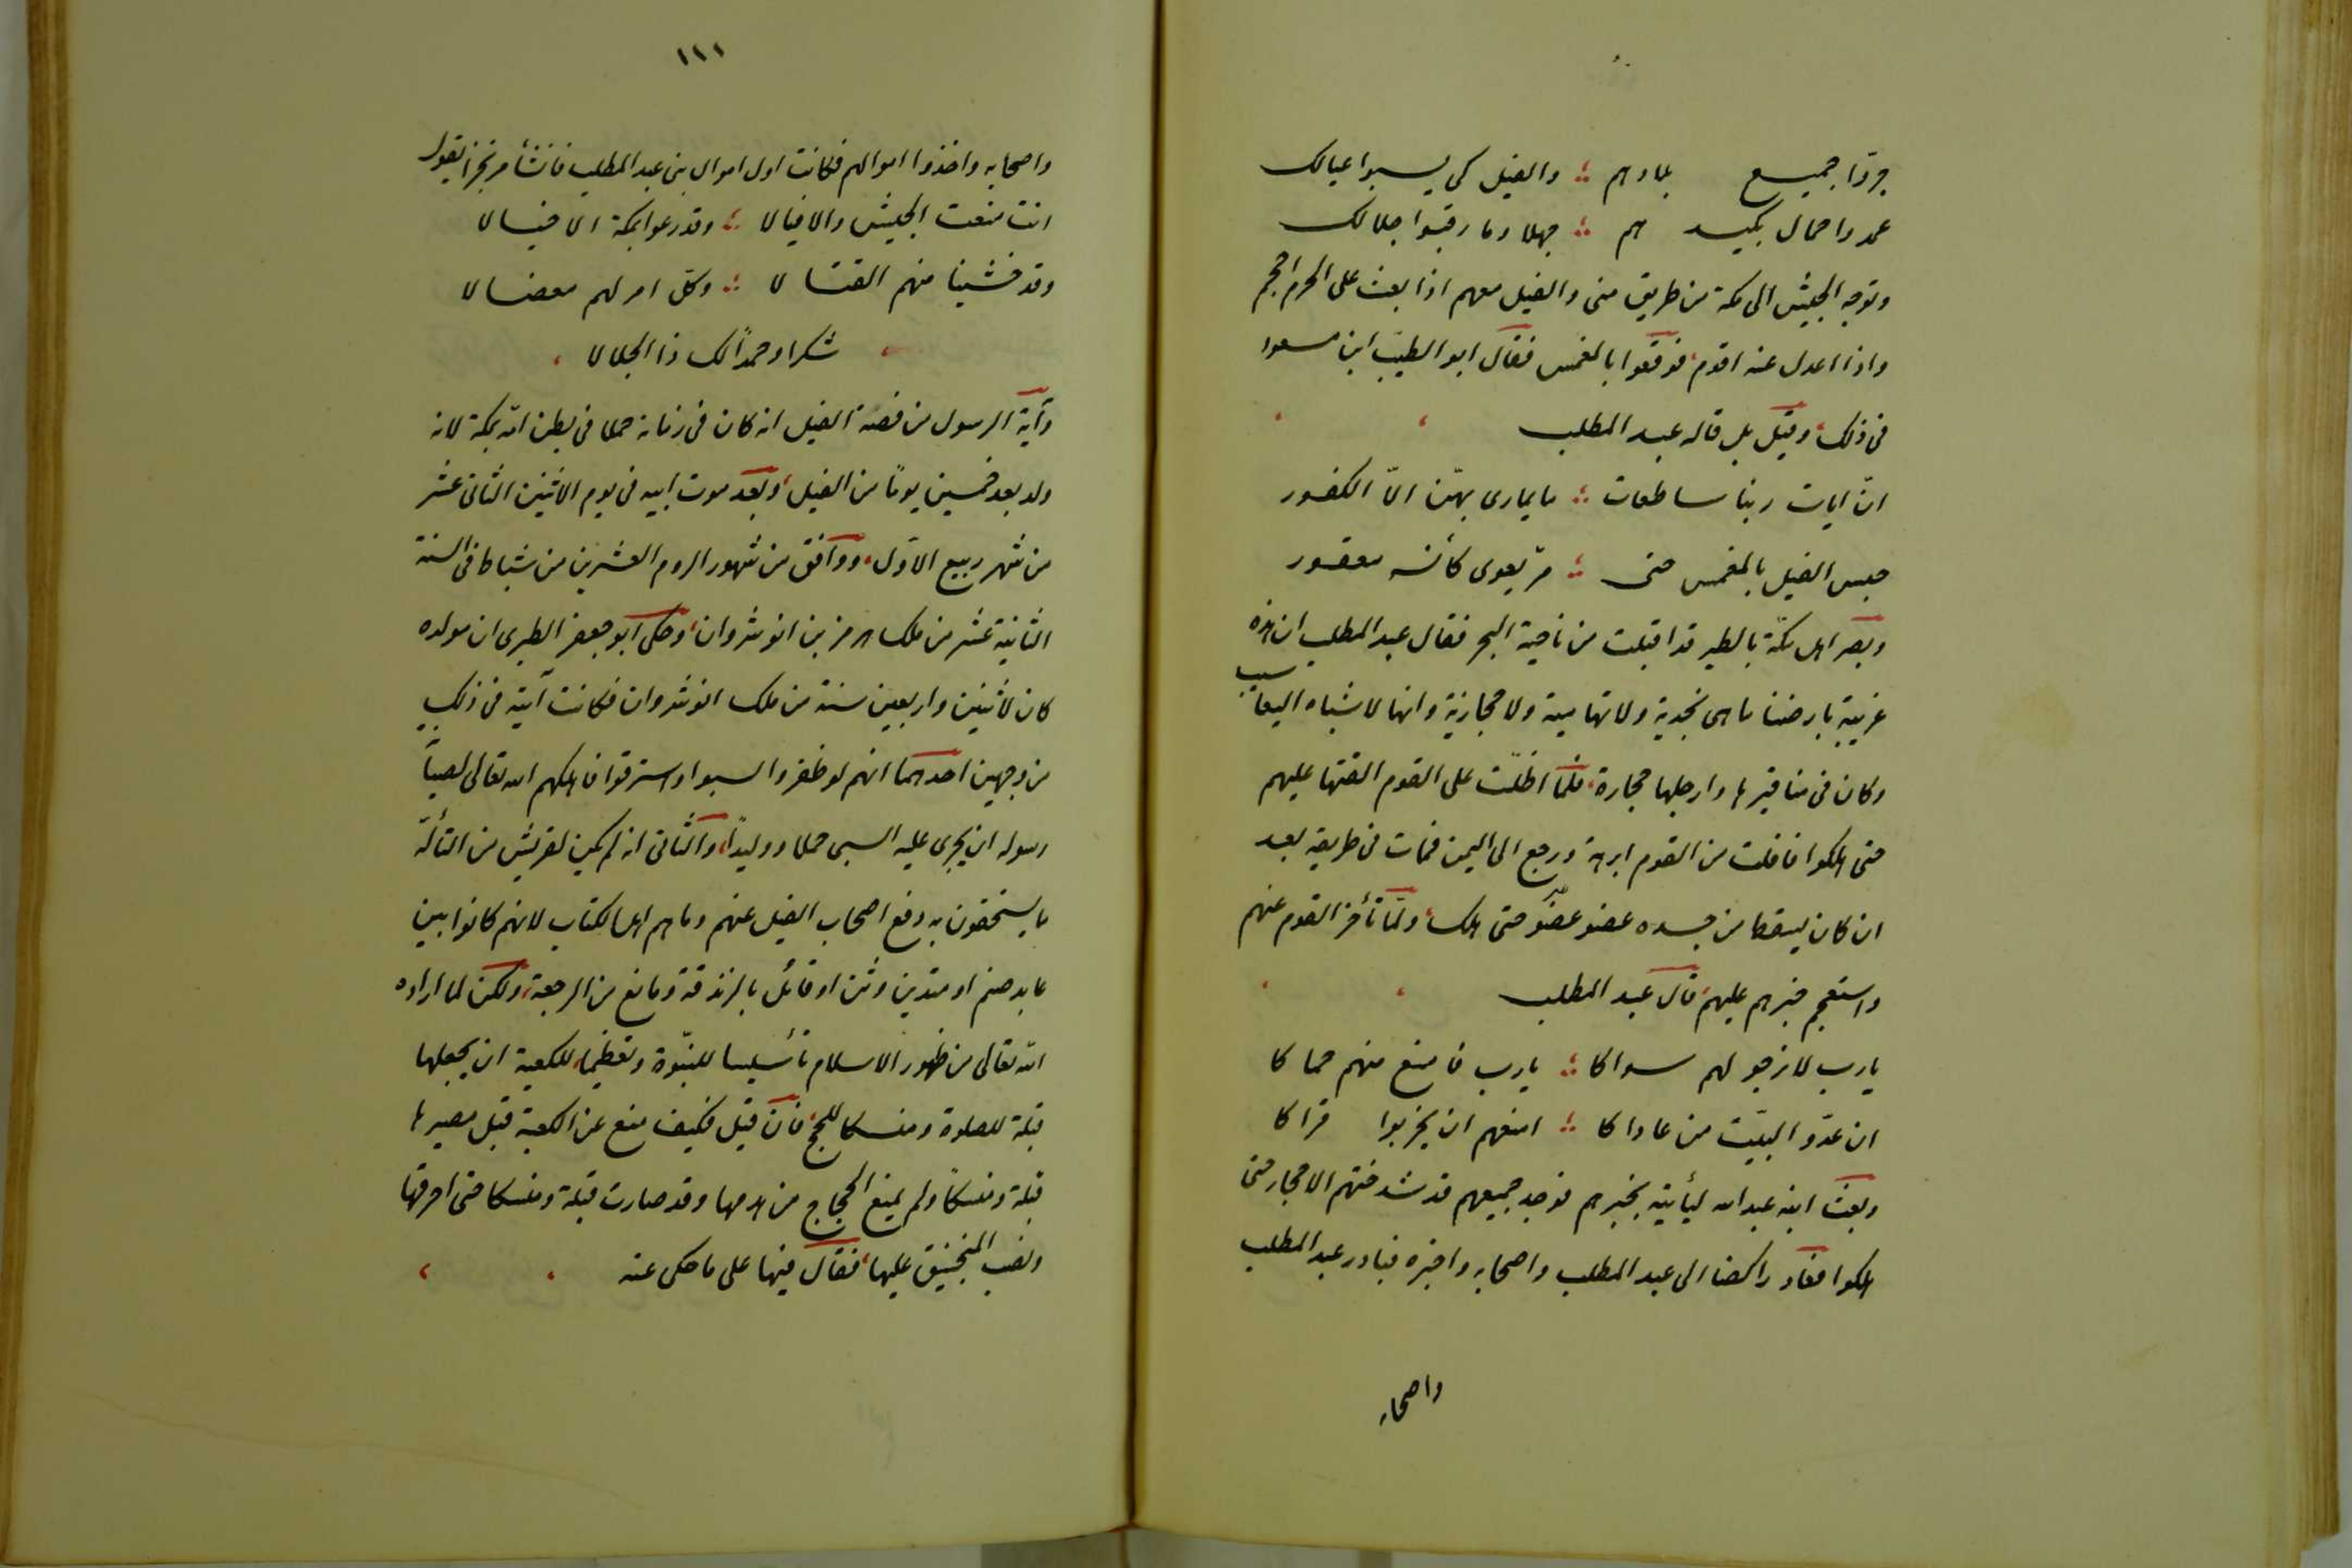 جروا جميع بلادهم والفيل كى يسبوا عيالك
عمدوا حمالك بكيدهم جهلا وما رقبوا جلالك
وتوجه الجيش الى مكة من طريق منى والفيل معهم اذا بعث على الحرم احجم
واذا اعدل عنه اقدم فوقفوا بالمغمس فقال ابو الطيب ابن مسعود
فى ذلك وقيل بل قاله عبد المطلب
انّ ايات ربنا ساطعات ما يمارى بهنّ الاّ الكفور
حبس الفيل بالمغمس حتى مرّ يعوى كأنه معقور
وبصر اهل مكّة بالطير قد اقبلت من ناحية البحر فقال عبد المطلب ان هذه
غريبة بارضنا ما هى نجدية ولا تهامية ولا حجازية وانها لاشباه اليعاسيب
وكان فى مناقيرها وارجلها حجارة فلمّا اظلّت على القوم القتها عليهم
حتى هلكوا فافلت من القوم ابرهة ورجع الى اليمن فمات فى طريقه بعد
ان كان يسقط من جسده عضو عضو حتى هلك ولمّا تأخر القوم عنهم
واستعجم خبرهم عليهم قال عبد المطلب
يا رب لا نرجو لهم سواكا يا رب فامنع منهم حماكا
ان عدّو البيت من عاداكا امنعهم ان يخربوا قراكا
وبعث ابنه عبد الله ليأتيه بخبرهم فوجد جميعهم قد شدختهم الاحجار حتى
هلكوا فعاد راكضا الى عبد المطلب واصحابه واخبره فبادر عبد المطلب
واصحابه
١١١
واصحابه واخذوا اموالهم فكانت اول اموال بنى عبد المطلب فانشأ مرتجزا يقول
انت منعت الجيش والافيالا وقد رعوا بمكة الاجبالا
وقد خشينا منهم القتالا وكلّ امر لهم معضالا
شكرا وحمدًا لك ذا الجلالا
وآية الرسول من قصة الفيل انه كان فى زمانه حملا فى بطن امّه بمكة لانه
ولد بعد خمسين يومًا من الفيل وبعد موت ابيه فى يوم الاثنين الثانى عشر
من شهر ربيع الاوّل ووافق من شهور الروم العشرين من شباط فى السنة
الثانية عشر من ملك هرمز بن انوشروان وحكى ابو جعفر الطبرى ان مولده
كان لاثنين واربعين سنة من ملك انوشروان فكانت آيته فى ذلك
من وجهين احدهما انهم لو ظفروا لسبوا واسترقوا فاهلكهم الله تعالى لصيانة
رسوله ان يجرى عليه السبى حملا ووليدًا والثانى انه لم يكن لقريش من التألّه
ما يستحقون به دفع اصحاب الفيل عنهم وما هم اهل كتاب لانهم كانوا بين
عابد صنم او متدين وثن او قائل بالزندقة ومانع من الرجعة ولكن لما اراده
الله تعالى من ظهور الاسلام تأسيسا للنبّوة وتعظيما للكعبة ان يجعلها
قبلة للصلوة ومنسكا للحج فان قيل فكيف منع عن الكعبة قبل مصيرها
قبلة ومنسكا ولم يمنع الحجاج من هدمها وقد صارت قبلة ومنسكا حتى احرقها
ونصب المنجنيق عليها فقال فيها على ما حكى عنه